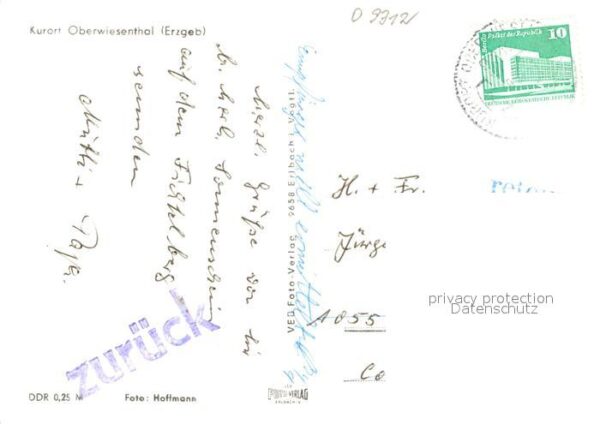 D 9312
Kurort Oberwiesenthal (Erzgeb)
Herzl. Grüße von hier
b. herrl. Sonnenschein
auf dem Fichtelberg
senden
Mutti + Papa
zurück
DDR 0,25 M
Foto: Hoffmann
VEB Foto-Verlag 9658 Erlbach i. Vogtl.
Empfänger nicht ermittelbar
10
Berlin Palast der Republik
DEUTSCHE DEMOKRATISCHE REPUBLIK
H. + Fr.
Jürge
A 055
Co
privacy protection
Datenschutz
FOTO-VERLAG
ERLBACH-V.